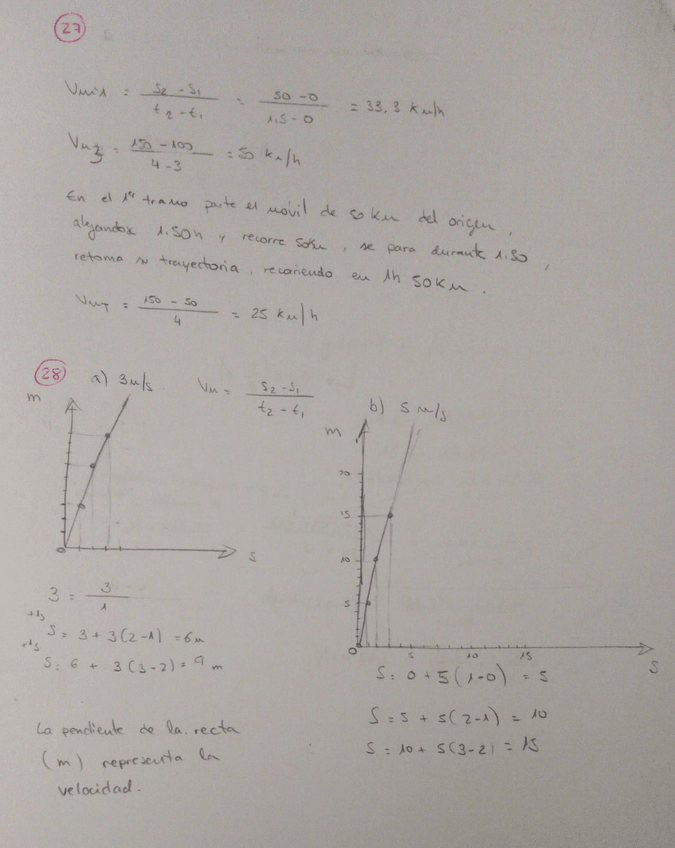 27
Vm1 = s2 - s1 / t2 - t1 = 50 - 0 / 1.5 - 0 = 33,3 km/h
Vm3 = 150 - 100 / 4 - 3 = 50 km/h
En el 1er tramo parte el móvil de 50 km del origen,
alejandose 1.50h y recorre 50km, se para durante 1.50,
retoma su trayectoria, recorriendo en 1h 50Km.
VmT = 150 - 50 / 4 = 25 km/h
28 a) 3m/s. Vm = s2 - s1 / t2 - t1
m
0
s
3 = 3 / 1
+1s
S = 3 + 3(2-1) = 6m
+1s
S = 6 + 3(3-2) = 9 m
La pendiente de la recta
(m) representa la
velocidad.
b) 5 m/s
m
20
15
10
5
0
5 10 15
s
S = 0 + 5(1-0) = 5
S = 5 + 5(2-1) = 10
S = 10 + 5(3-2) = 15